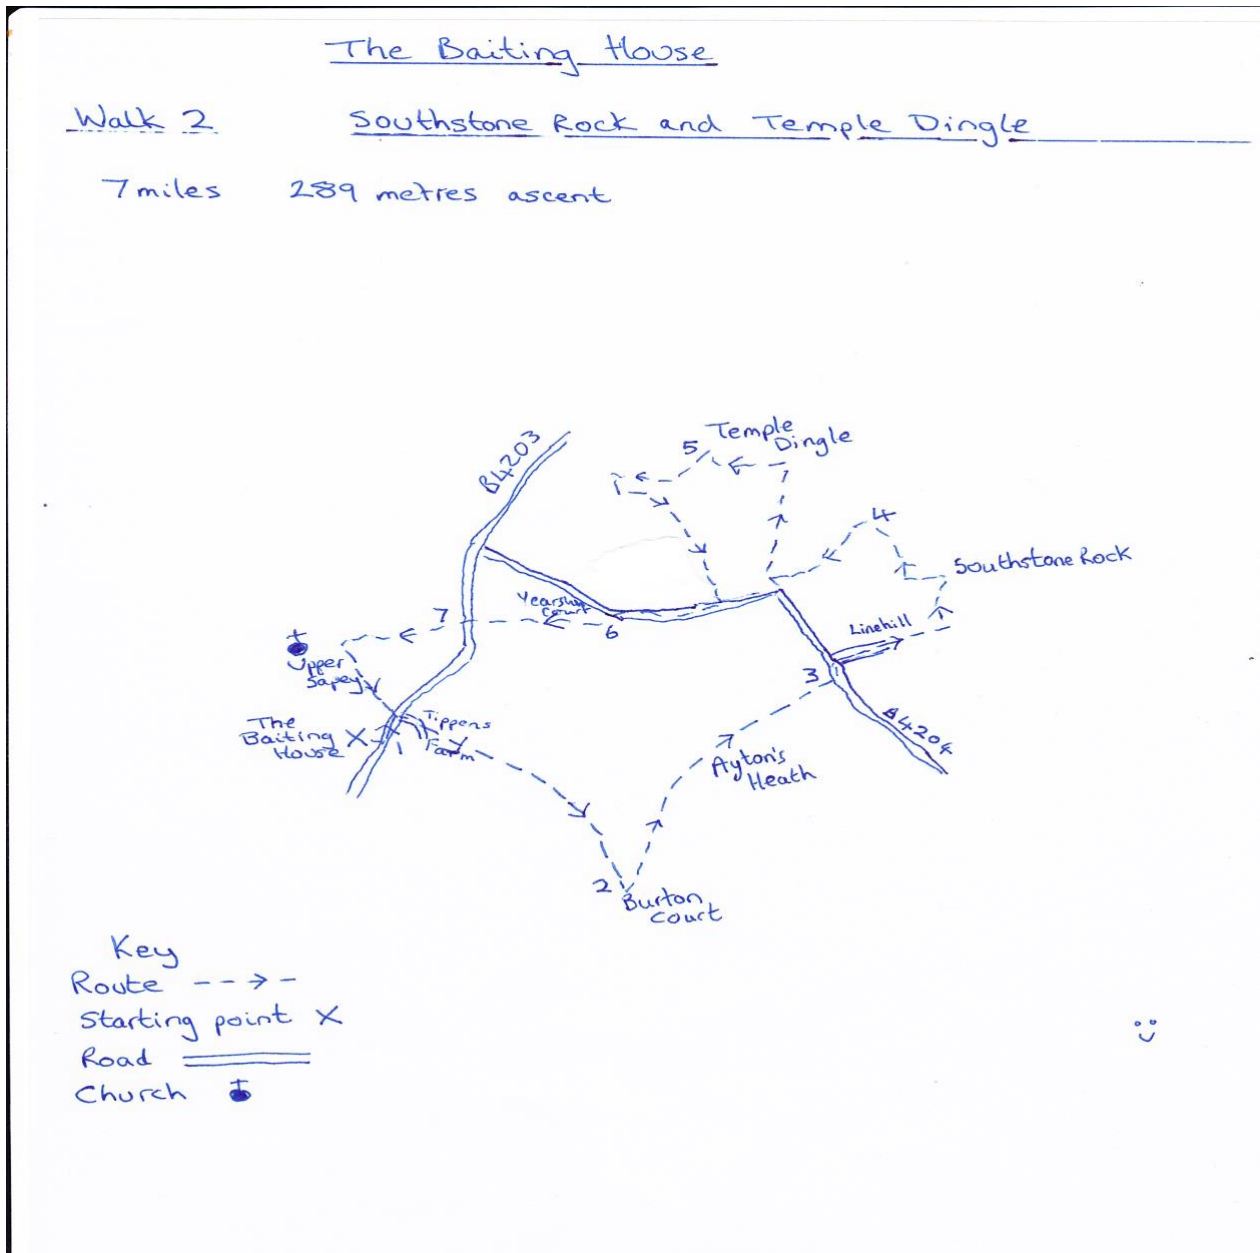 The Baiting House
Walk 2 Southstone Rock and Temple Dingle
7 miles 289 metres ascent
B4203
5
Temple
Dingle
4
Southstone Rock
Court
7
6
Linehill
3
Upper
Sapey
The
Baiting
House X
1
Tippens
Farm
B4204
Ayton's
Heath
2
Burton
Court
Key
Route
Starting point X
Road
Church